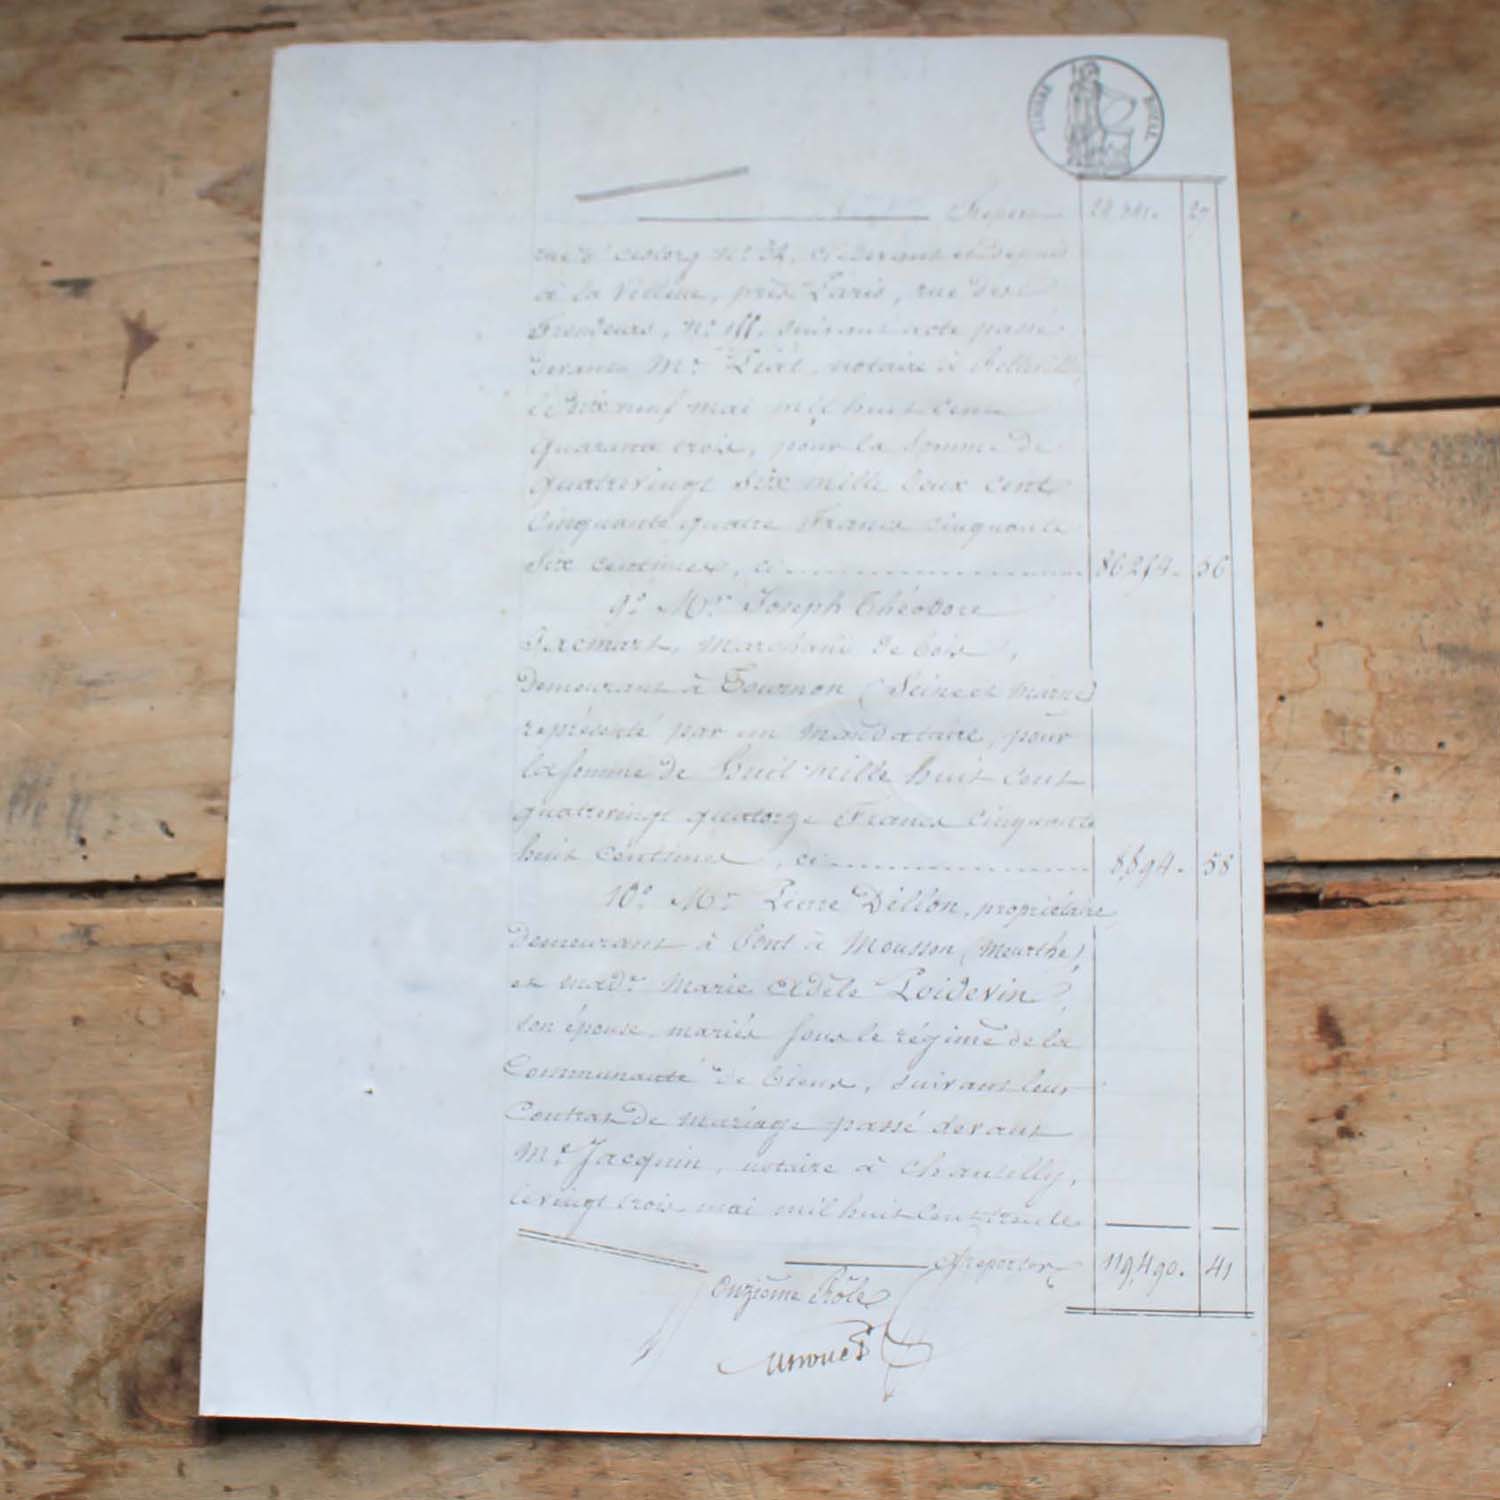 TIMBRE ROYAL
Report 27
N° 52,
à la Villette, près Paris, rue des
N° 111, suivant acte passé
devant Mr notaire à Belleville,
le dix neuf mai mil huit cent
quarante trois, pour la somme de
quatrevingt six mille deux cent
cinquante quatre Francs cinquante
six centimes, ci 86254. 56
9° Mr Joseph Théodore
Jacmart, marchand de bois,
demeurant à Tournon (Seine et Marne)
représenté par un mandataire, pour
la somme de huit mille huit cent
quatrevingt quatorze Francs cinquante
huit centimes, ci 8894. 58
10° Mr Pierre Dillon, propriétaire
demeurant à Pont à Mousson (Meurthe)
et made Marie Adèle Poidevin
son épouse, mariés sous le régime de la
Communauté de biens, suivant leur
Contrat de mariage passé devant
Me Jacquin, notaire à Chantilly,
le vingt trois mai mil huit cent trente
A reporter 119,490. 41
Onzième Rôle